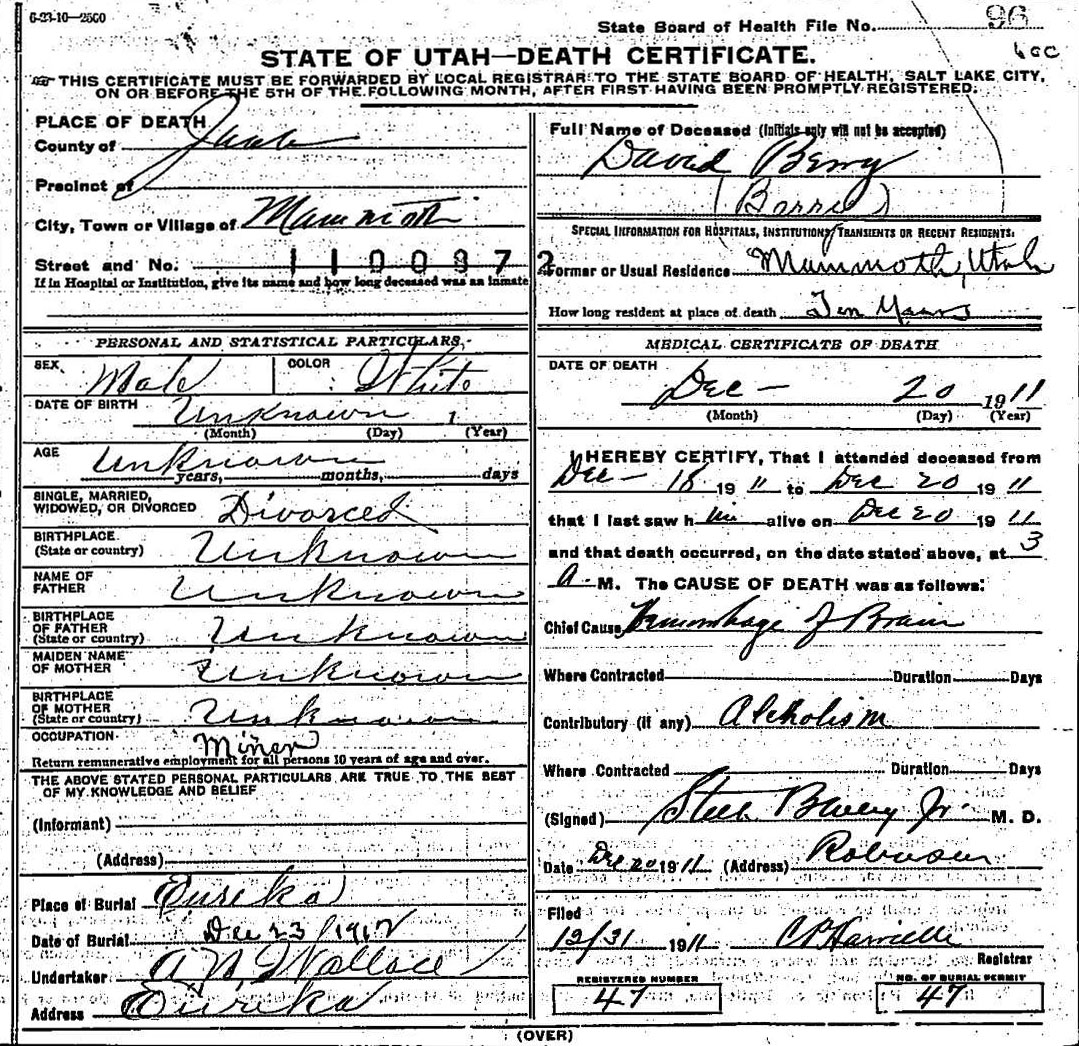 6-23-10—2500
State Board of Health File No. 96
STATE OF UTAH—DEATH CERTIFICATE.
THIS CERTIFICATE MUST BE FORWARDED BY LOCAL REGISTRAR TO THE STATE BOARD OF HEALTH, SALT LAKE CITY,
ON OR BEFORE THE 5TH OF THE FOLLOWING MONTH, AFTER FIRST HAVING BEEN PROMPTLY REGISTERED.
PLACE OF DEATH
County of Juab
Precinct of
City, Town or Village of Mammoth
Street and No. 1100972
If in Hospital or Institution, give its name and how long deceased was an inmate
Full Name of Deceased (Initials only will not be accepted)
David Berry
(Barrie)
SPECIAL INFORMATION FOR HOSPITALS, INSTITUTIONS, TRANSIENTS OR RECENT RESIDENTS:
Former or Usual Residence Mammoth, Utah
How long resident at place of death Ten Years
PERSONAL AND STATISTICAL PARTICULARS.
SEX Male COLOR White
DATE OF BIRTH Unknown 1
(Month) (Day) (Year)
AGE Unknown
years, months, days
SINGLE, MARRIED,
WIDOWED, OR DIVORCED Divorced
BIRTHPLACE
(State or country) Unknown
NAME OF
FATHER Unknown
BIRTHPLACE
OF FATHER
(State or country) Unknown
MAIDEN NAME
OF MOTHER Unknown
BIRTHPLACE
OF MOTHER
(State or country) Unknown
OCCUPATION Miner
Return remunerative employment for all persons 10 years of age and over.
THE ABOVE STATED PERSONAL PARTICULARS ARE TRUE TO THE BEST
OF MY KNOWLEDGE AND BELIEF
(Informant)
(Address)
Place of Burial Eureka
Date of Burial Dec 23 1912
Undertaker A N Wallace
Address Eureka
MEDICAL CERTIFICATE OF DEATH
DATE OF DEATH
Dec — 20 1911
(Month) (Day) (Year)
I HEREBY CERTIFY, That I attended deceased from
Dec — 18 1911 to Dec 20 1911
that I last saw him alive on Dec 20 1911
and that death occurred, on the date stated above, at 3
A. M. The CAUSE OF DEATH was as follows:
Chief Cause Hemorrhage of Brain
Where Contracted Duration Days
Contributory (if any) Alcholism
Where Contracted Duration Days
(Signed) Steele Jr. M. D.
Date Dec 20 1911 (Address) Robinson
Filed
12/31 1911
Registrar
REGISTERED NUMBER
47
NO. OF BURIAL PERMIT
47
(OVER)